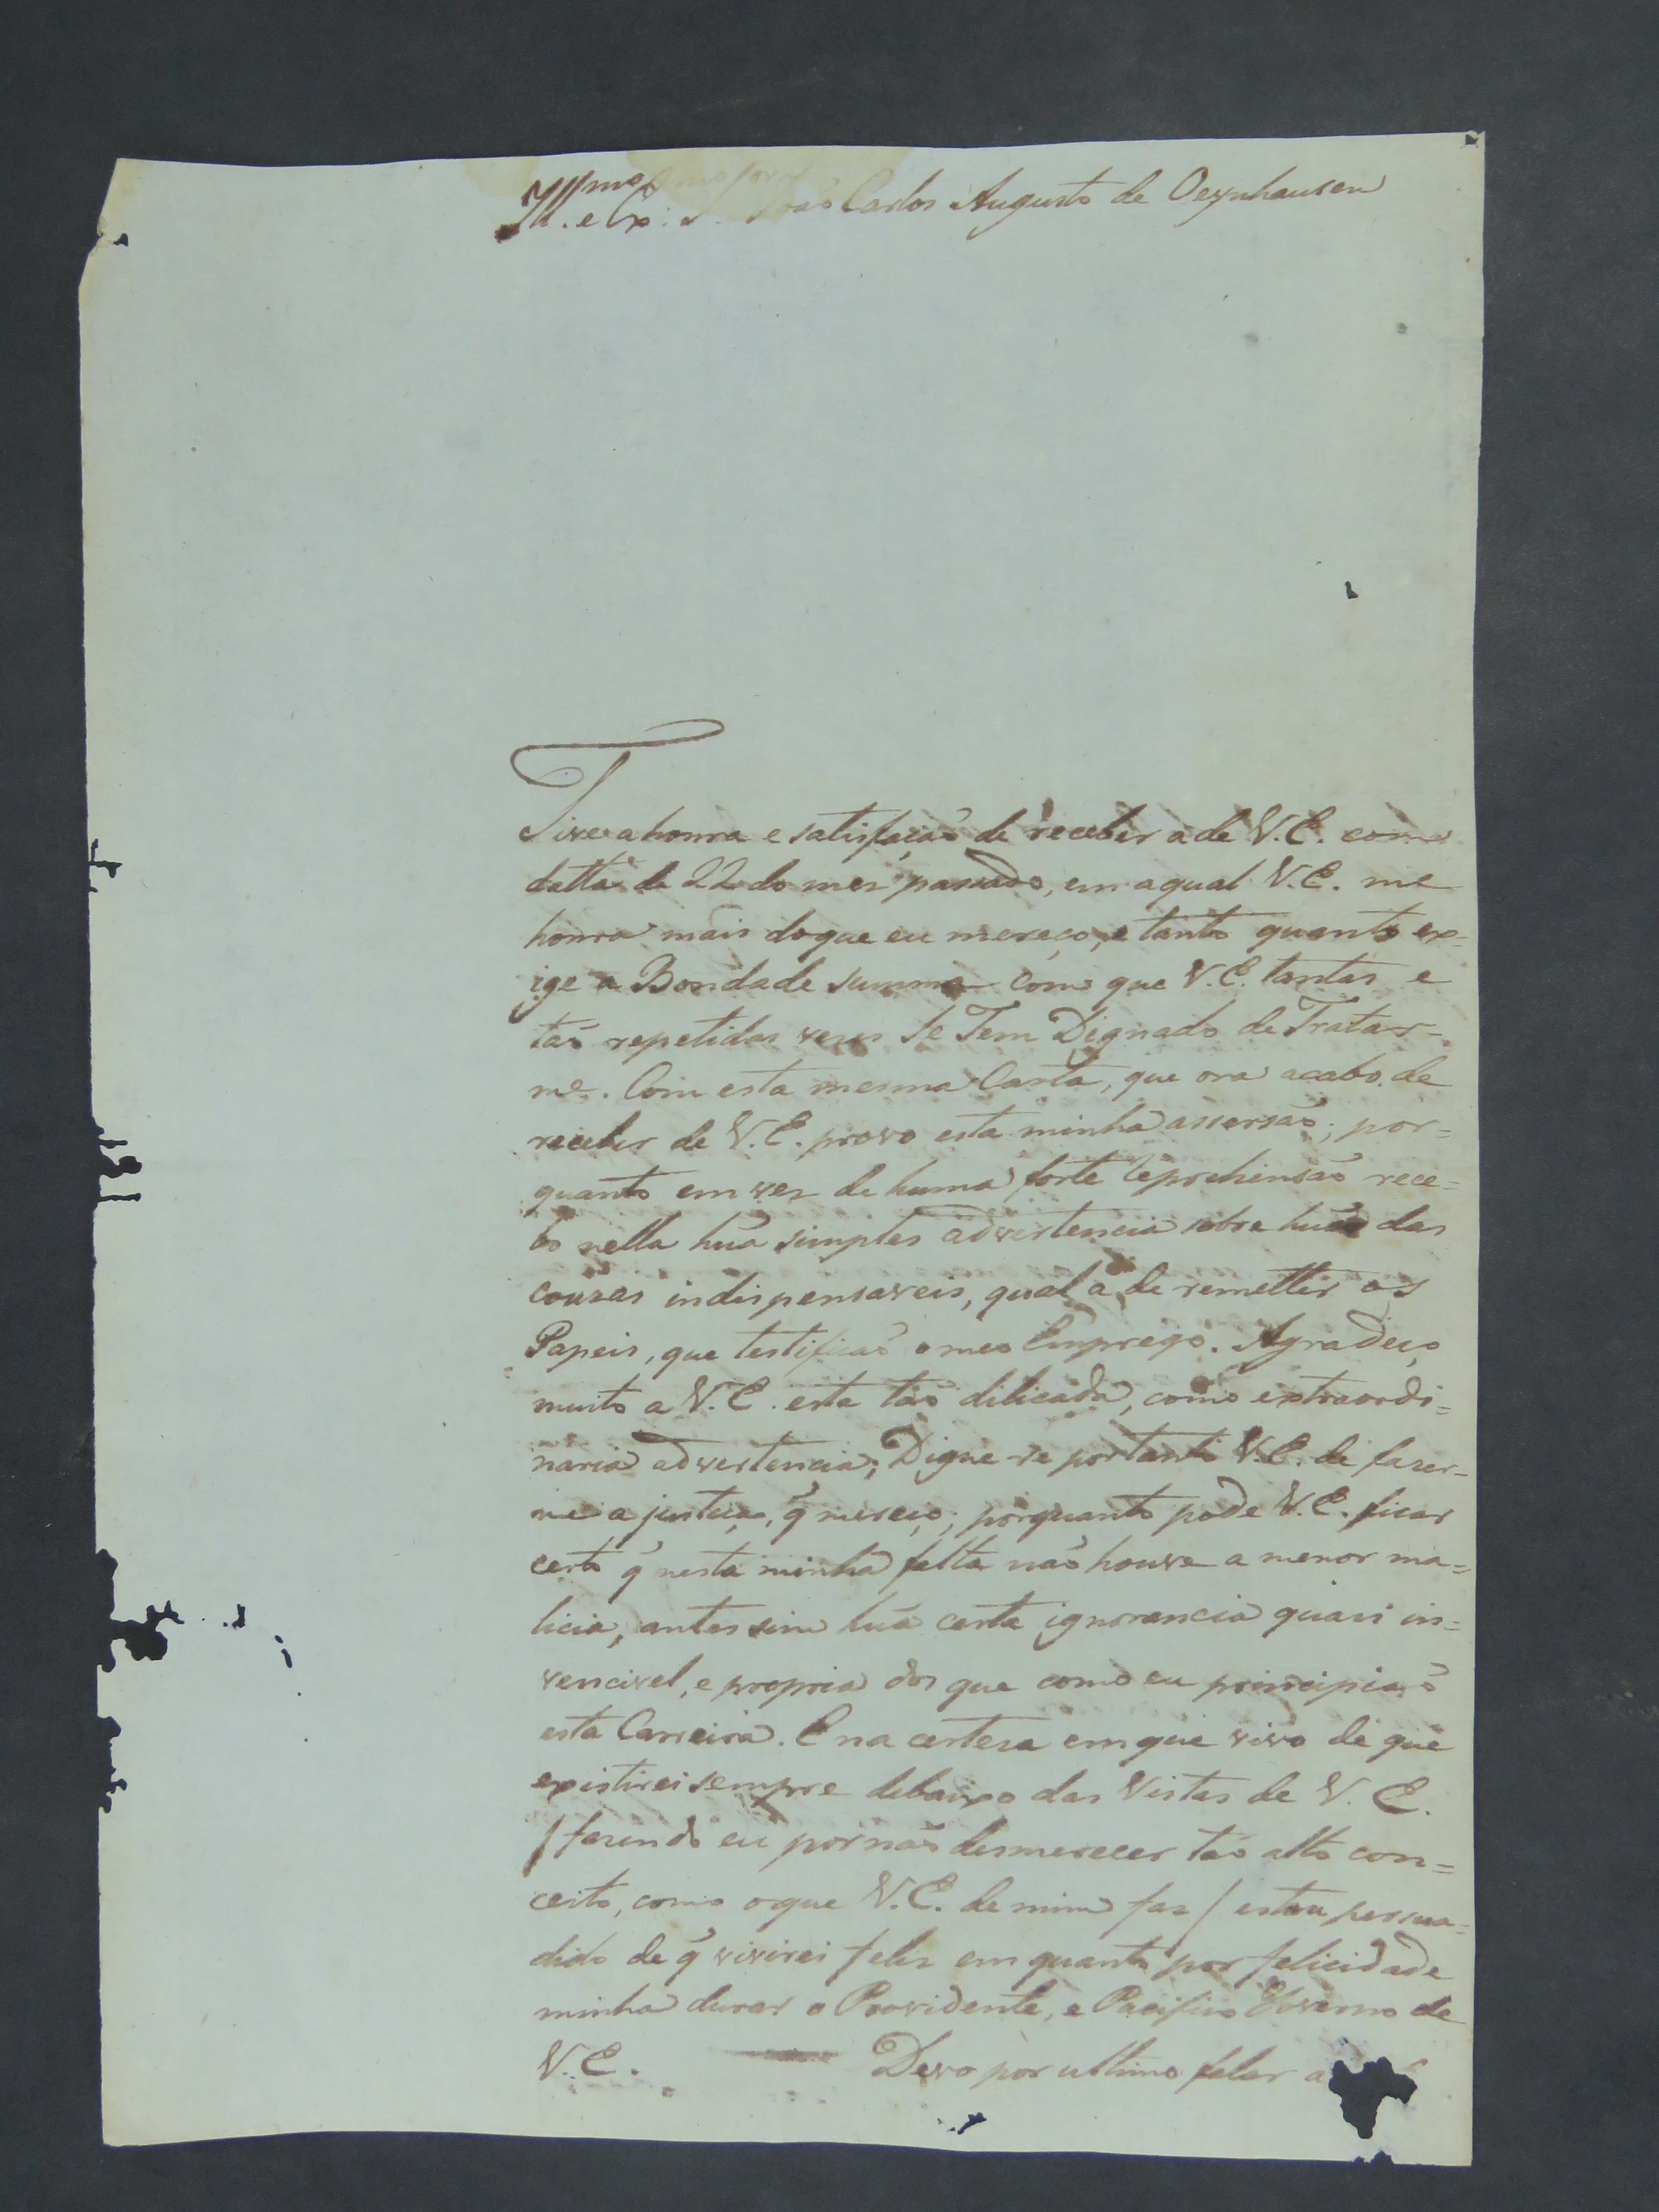 Ill.mo e Ex.mo Snor João Carlos Augusto de Oeynhausen
Tive a honra e satisfação de receber a de V.E. com
datta de 22 do mez passado, em a qual V.E. me
honra mais do que eu mereço, e tanto quanto ex=
ige a Bondade summa com que V.E. tantas e
tão repetidas vezes Se Tem Dignado de Tratar-
me. Com esta mesma Carta, que ora acabo de
receber de V.E. provo esta minha asserção; por=
quanto em vez de huma forte reprehensão rece=
bo nella hũa simples advertencia sobre hũa das
couzas indispensaveis, qual a de remetter os
Papeis, que testificão o meo Emprego. Agradeço
muito a V.E. esta tão dilicada, como extraordi=
naria advertencia; Digne-se portanto V.E. de fazer-
me a justiça, q̃ mereço; porquanto pode V.E. ficar
certo q̃ nesta minha falta não houve a menor ma=
licia, antes sim hũa certa ignorancia quasi in=
vencivel, e propria dos que como eu principião
esta Carreira. E na certeza em que vivo de que
existirei sempre debaixo das Vistas de V.E.
/ fazendo eu por não desmerecer tão alto con=
ceito, como o que V.E. de mim faz / estou persua=
dido de q̃ vivirei feliz em quanto por felicidade
minha durar o Providente, e Pacifico Governo de
V.E. Devo por ultimo falar a